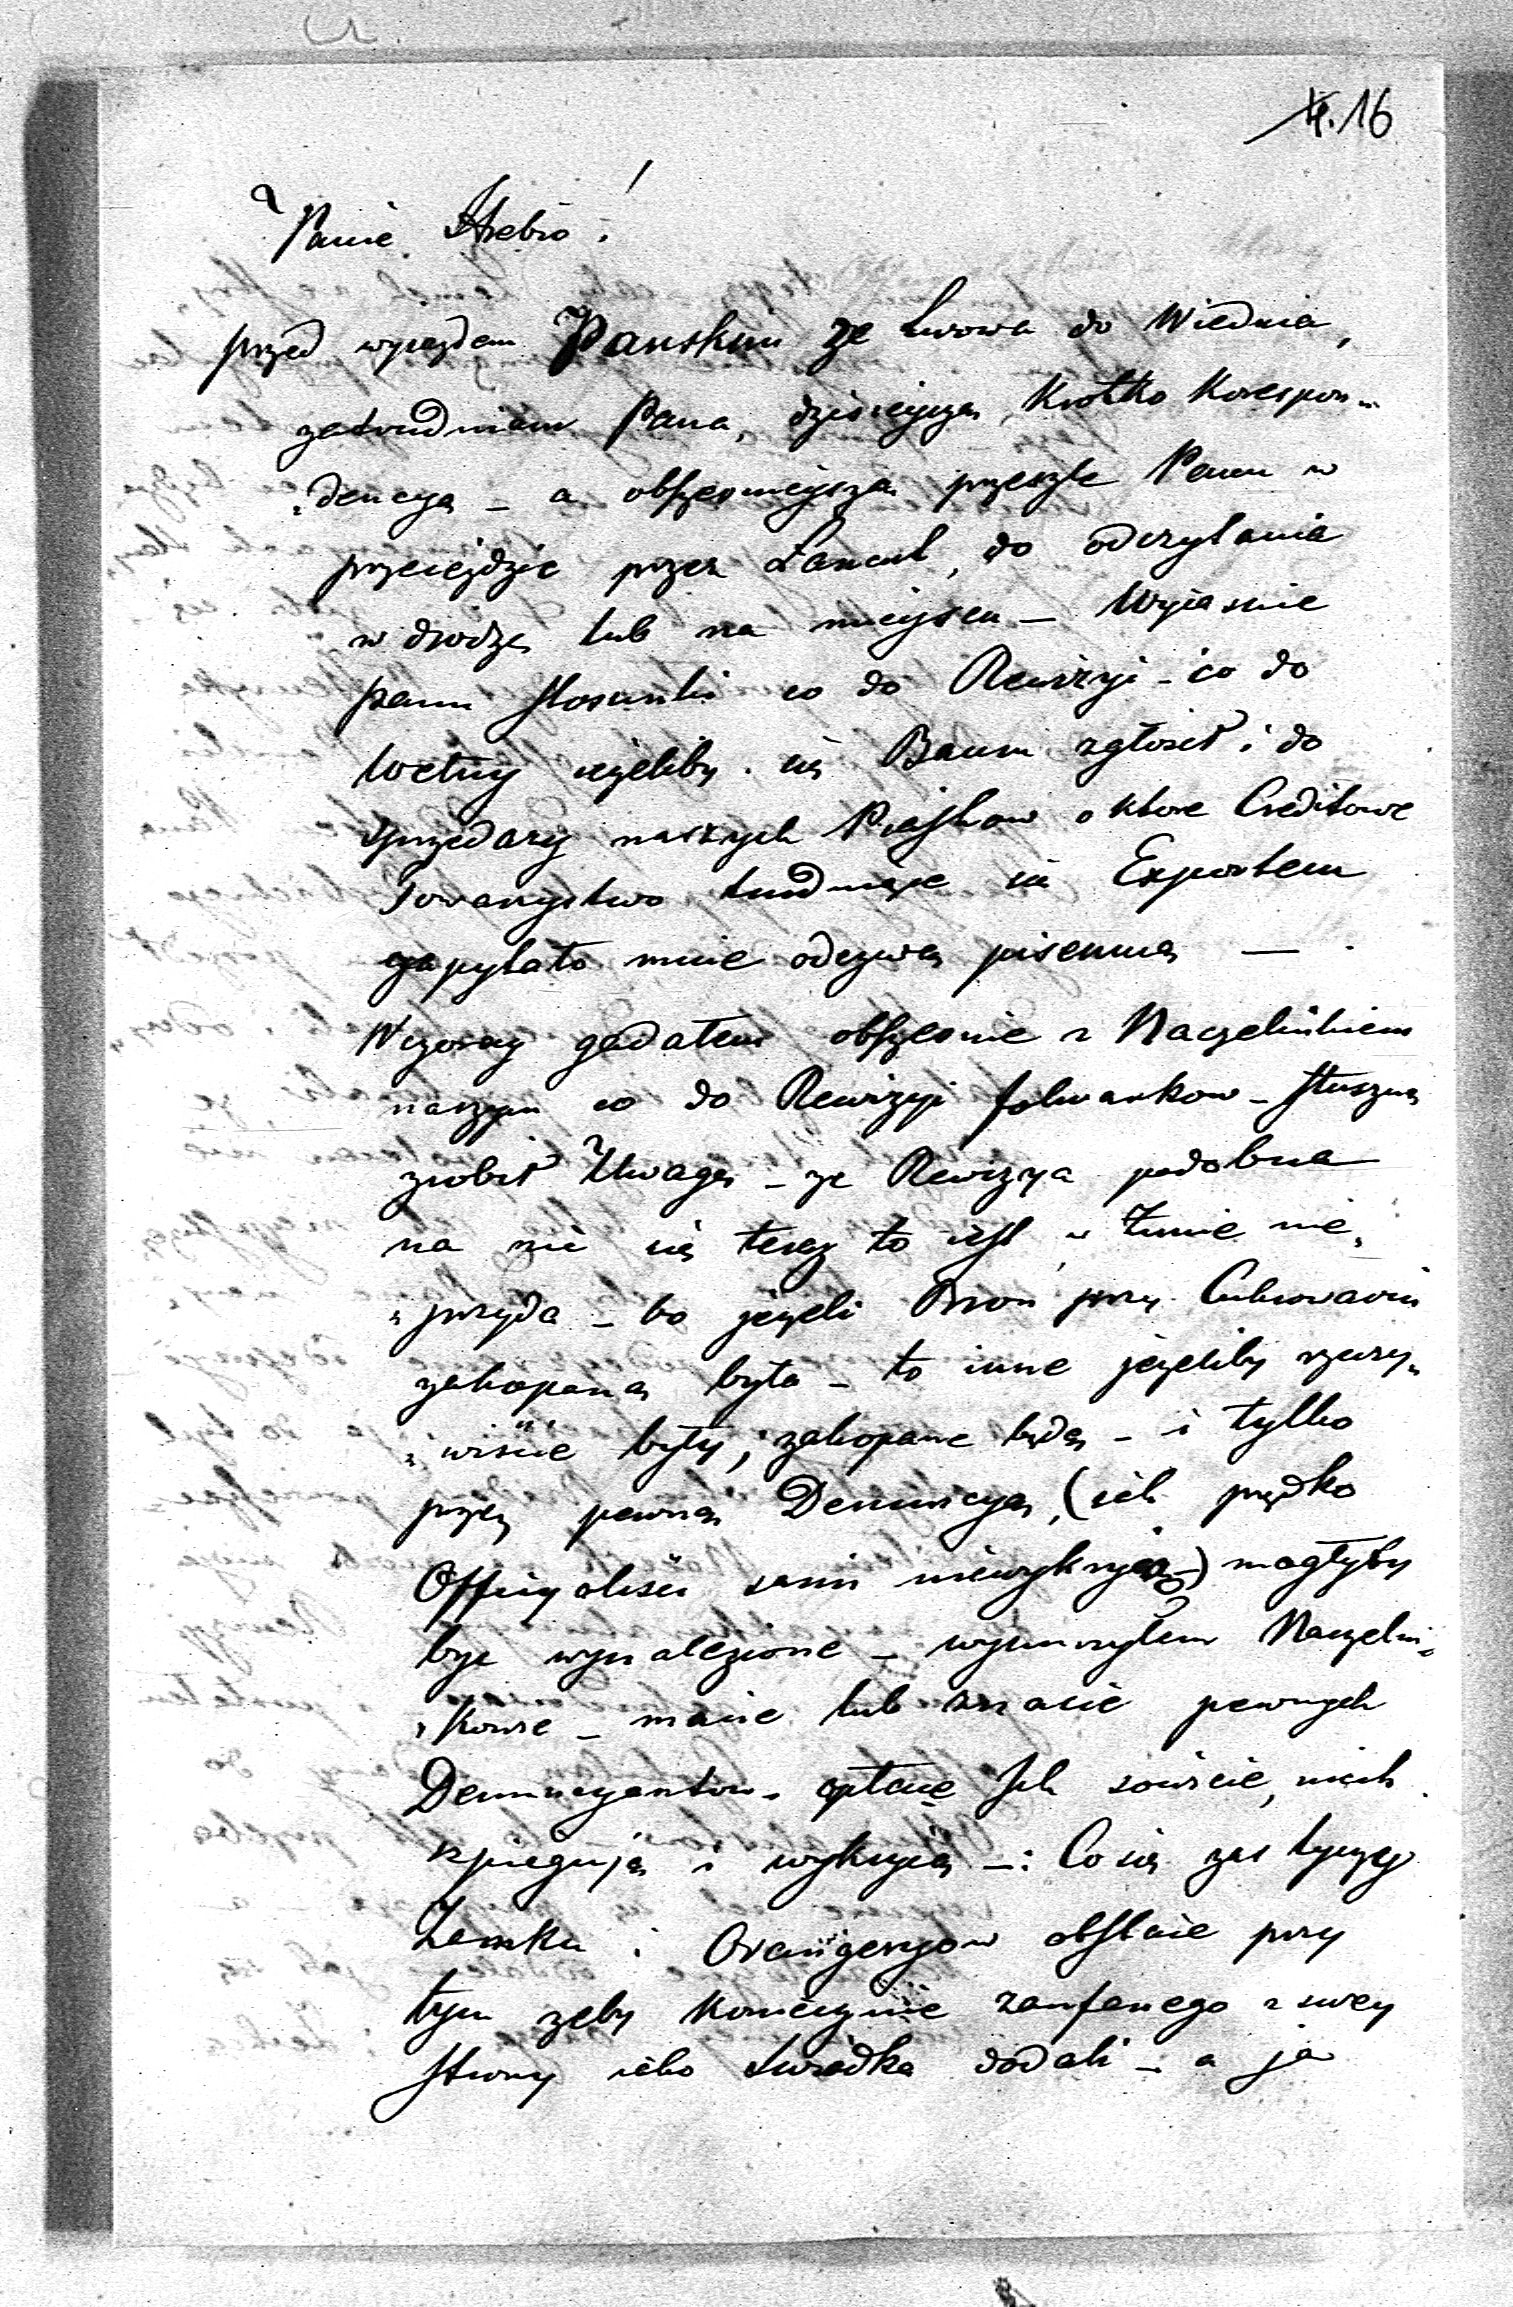 4. 16
Panie Hrebio!
przed wyiazdem Panskim ze Lwowa do Wiednia,
zatrudniam Pana, dzisieyszą Krotko Korespon„
„dencyą – a obszernieyszą przeszle Panu w
przeiezdzie przez Lancut, do odczytania
w drodze lub na mieyscu – Wyiasnie
panu stosunki co do Rewizyi – co do
Wełny ieżeliby się Baum zgłosił i do
sprzedazy naszych o ktore Creditowe
Towarzystwo trudniące się Exportem
zapytało mnie odezwą pisemną —
Wczoray gadałem obszernie z Naczelnikiem
naszym co do Rewizyi folwarkow – słuszną
zrobił Uwagę – ze Rewizya podobna
na nic się teraz to iest w zimie nie„
„przyda – bo jezeli Bron przy Cukrowarni
zakopaną była – to inne jezeliby rzeczy„
„wiscie były, zakopane będą – i tylko
przez pewną Denuncyą, (ich prędko
Officyalisci sami niewykryią) mogłyby
byc wynalezione – Naczelni„
„kowi – macie lub znacie pewnych
Denuncyantow – opłacie Ich sowicie, niech
szpiegują i wykryią –: Co się zas tyczy
Zamku i Orangeryow obstaie przy
tym zeby koniecznie zaufanego z swey
strony iako Swiadka dodali – a ja